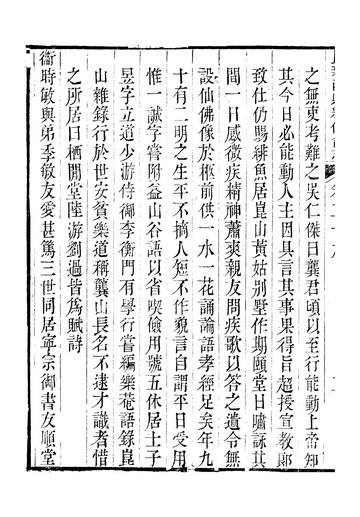 之無吏考難之吳仁傑曰龔君頃以至行能動上帝知
其今日必能動人主因具言其事果得旨超授宣教郎
致仕仍賜緋魚居崑山黃姑別墅作期頤堂日嘯詠其
間一日感微疾精神蕭爽親友問疾歌以答之遺令無
設仙佛像於柩前供一水一花誦論語孝經足矣年九
十有二明之生平不摘人短不作貌言自謂平日受用
惟一誠字嘗附益山谷語以省喫儉用號五休居士子
昱字立道少游侍御李衡門有學行嘗編樂菴語錄崑
山雜錄行於世安貧樂道稱龔山長名不逮才識者惜
之所居曰栖閒堂陸游劉過皆為賦詩
衛時敏與弟季敏友愛甚篤三世同居寧宗御書友順堂